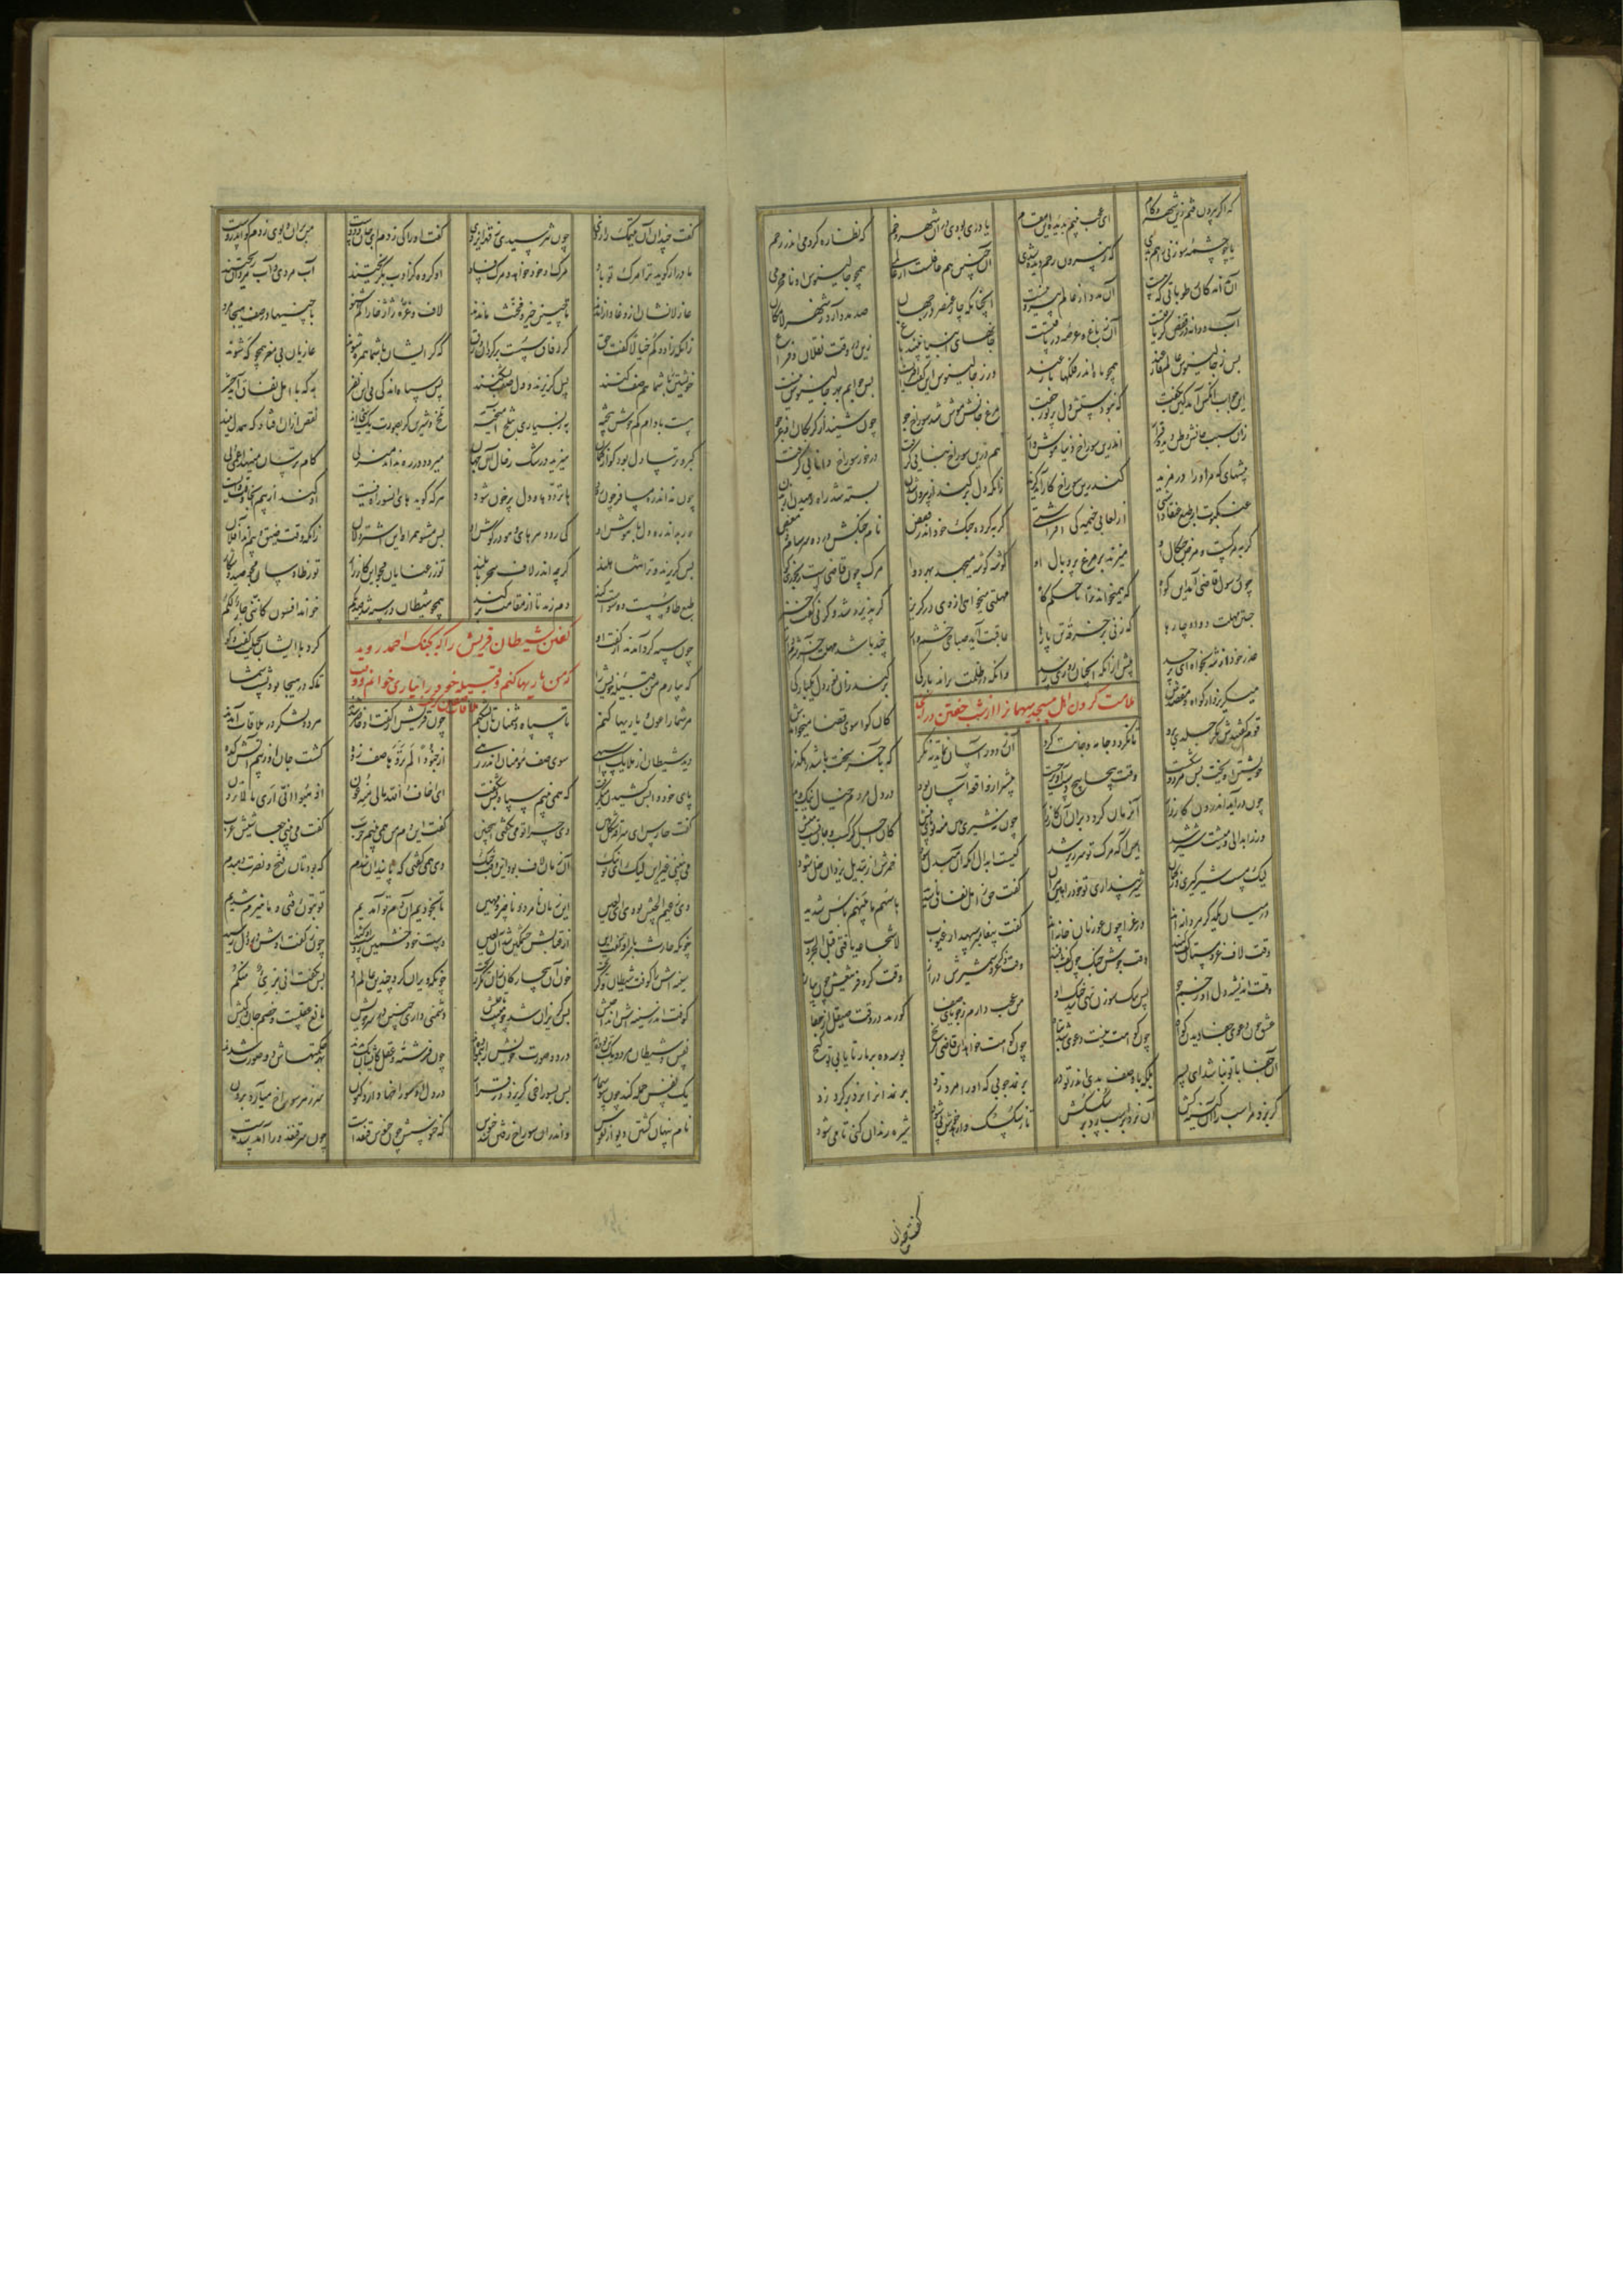 که اگر بیرون فتم زین شهر و کام ای عجب بینم بدیده این مقام یا دری بودی در آن شهر وخم که نظاره کردمی اندر رحم
یا چو چشمه سوزنی راهم بدی که ز بیرون رحم دیده شدی آن جنین هم غافلست از عالمی همچو جالینوس او نامحرمی
آن نداند کان رطوباتی که هست آن مدد از عالم بیرونیست آنچنانکه چار عنصر در جهان صد مدد دارد ز شهر لامکان
آب و دانه در قفص گر یافتست آن ز باغ و عرصه در تافتست جانهای انبیا بینند باغ زین قفص وقت نقلان و فراغ
پس ز جالینوس عالم فارغند همچو ماه اندر فلکها بازغند ور ز جالینوس این گفت افتراست پس جوابم بهر جالینوس نیست
این جواب آنکس آمد کین بگفت که نبودستش دل پر نور جفت مرغ جانش موش شد سوراخ جو چون شنید از گربکان او عرجو
زان سبب جانش وطن دید و قرار اندرین سوراخ دنیا موش وار هم درین سوراخ بنایی گرفت درخور سوراخ دانایی گرفت
پیشهای که مر او را در مزید کندرین سوراخ کار آید گزید زانکه دل برکند از بیرون شدن بسته شد راه رهیدن از بدن
عنکبوت ار طبع عنقا داشتی از لعابی خیمه کی افراشتی گربه کرده چنک خود اندر قفص نام چنکش درد و سرسام و مغص
گربه مرکست و مرض چنکال او میزند بر مرغ پر و بال او گوشه گوشه میجهد بهر دوا مرک چون قاضی است رنجوری گوا
چون رسول قاضی آمد این گواه که همیخواند ترا تا حکم گاه مهلتی میخواهی از وی در گریز گر پذیرد شد و گرنی گفت خیز
جستن مهلت دوا و چارها که زنی بر خرقه تن پارها عاقبت آید صباحی خشم وار چند باشد مهلت آخر شرم دار
عذر خود از شه بخواه ای پر حسد پیش از آنکه آنچنان روزی رسد وانکه در ظلمت براند بارکی برکند زان نور دل یکبارکی
میگریزد از گواه و مقصدش کان گوا سوی قضا میخواندش
ملامت کردن اهل مسجد میهمانرا از شب خفتن در آن
قوم گفتندش مکن جلدی برو تا نگردد جامه و جانت گرو آن ز دور آسان نماید به نگر که به آخر سخت باشد رهگذر
خویشتن آویخت بس مرد و گسست وقت پیچا پیچ دست آویز جست پیشتر از واقعه آسان بود در دل مردم خیال نیک و بد
چون در آید اندرون کارزار آنزمان گردد بر آنکس کار زار چون نه شیری هین منه تو پای پیش کان اجل گرگست و جان تست میش
ور ز ابدالی و میشت شیر شد ایمن آ که مرک تو سرزیر شد کیست ابدال آنکه او مبدل شود خمرش از تبدیل یزدان خل شود
لیک مست شیر گیری وز گمان شیر پنداری تو خود را هین مران گفت حق ز اهل نفاق ناسدید باسهم ما بینهم باس شدید
در میان یکدگر مردانه اند در غزا چون عورتان خانه اند گفت پیغامبر سپهدار غیوب لا شجاعه یا فتی قبل الحروب
وقت لاف غزو مستان کف کنند وقت جوش جنک چون کف بی فنند وقت ذکر غزو شمشیرش دراز وقت کر و فر تیغش چون پیاز
وقت اندیشه دل او زخم جو پس بیک سوزن تهی شد خیک او من عجب دارم ز جویای صفا کو رمد در وقت صیقل از جفا
عشق چون دعوی جفا دیدن گواه چون گواهت نیست شد دعوی تباه چون گواهت خواهد این قاضی مرنج بوسه ده بر مار تا یابی تو گنج
آن جفا با تو نباشد ای پسر بلکه با وصف بدی اندر تو در بر نمد چوبی که او را مرد زد بر نمد آنرا نزد بر گرد زد
گر بزد مر اسب را آن کینه کش آن نزد بر اسب زد بر سکسکش تا ز سکسک وارهد خوش پی شود شیره را زندان کنی تا می شود
گفت چندان
گفت چندان آن یتیمک را زدی چون نترسیدی ز قهر ایزدی گفت او را کی زدم ای جان دوست من بر آن دیوی زدم کو اندروست
مادر ار گوید ترا مرک تو باد مرک آن خو خواهد و مرک فساد آن گروهی کز ادب بگریختند آب مردی و آب مردان ریختند
عاذلانشان از وغا واراندند تا چنین حیز و مخنث ماندند لاف و غره ژاژخا را کم شنو با چنینها در صف هیجا مرو
زانکه زادوکم خبالا گفت حق کز رفاق سست برگردان ورق که گر ایشان با شما همره شوند غازیان بی مغز همچو که شوند
خویشتن را با شما هم صف کنند پس گریزند و دل صف بشکنند پس سپاه اندکی بی این نفر به که با اهل نفاق آید حشر
هست بادام کم خوش بیخته به ز بسیاری بتلخ آمیخته تلخ و شیرین گر بصورت یک شی اند نقص از آن افتاد که همدل نیند
گبر ترسا دل بود کو از گمان میزید در شک ز حال آن جهان میرود در ره نداند منزلی گام ترسان مینهد اعمی دلی
چون نداند ره مسافر چون رود با ترددها و دل پرخون شود هرکه گوید های اینسو راه نیست او کند از بیم آنجا وقف و ایست
ور بداند ره دل با هوش او کی رود هر های و هو در گوش او پس مشو همراه این اشتر دلان زانکه وقت ضیق و بیمند آفلان
پس گریزند و ترا تنها هلند گرچه اندر لاف سحر بابلند تو ز رعنایان مجو هین کارزار تو ز طاوسان مجو صید و شکار
طبع طاوسست و وسواست کند دم زند تا از مقامت برکند همچو شیطان در سپه شد صد یکم خواند افسون کاننی جار لکم
گفتن شیطان قریش را که بجنک احمد روید
که من یاریها کنم و قبیله خود را بیاری خوانم و وقت
ملاقات صفین گریختن
چون سپه گرد آمدند از گفت او کرد با ایشان بحیلت گفت و گو
که بیارم من قبیله خویش را تا که در هیجا بود پشت شما
مر شما را عون و یاریها کنم تا سپاه دشمنانتان بشکنم چون قریش از گفت او حاضر شدند هر دو لشکر در ملاقات آمدند
دید شیطان از ملایک اسپهی سوی صف مؤمنان اندر رهی آن جنودا لم تروها صف زده گشت جان او ز بیم آتشکده
پای خود واپس کشیدن میگرفت که همی بینم سپاه بس شگفت ای اخاف الله مالی منه عون اذهبوا انی اری ما لا ترون
گفت حارس ای سراقه شکل هین دی چرا تو می نگفتی اینچنین گفت ایندم من همی بینم حرب گفت می بینی جعاشیش عرب
می نبینی غیر این لیک ای تو ننک آن زمان لاف بود این وقت جنک دی همی گفتی که پایندان شدم که بودتان فتح و نصرت دمبدم
دی زعیم الجیش بودی ای لعین این زمان نامرد و ناچیز و مهین تا بخوردیم آن دم تو آمدیم تو بتون رفتی و ما هیزم شدیم
چونکه حارث با سراقه گفت این از عتابش خشمگین شد آن لعین دست خود خشمین ز دست او کشید چون ز گفت اوش درد دل رسید
سینه اش را کوفت شیطان و گریخت خون آن بیچارگان زین مکر ریخت چونکه ویران کرد چندین عالم او پس بگفت انی بریء منکم
کوفت اندر سینه اش انداختش پس گریزان شد چو هیبت تاختش دشمنی داری چنین در سر خویش مانع عقلست و خصم جان و کیش
نفس و شیطان هر دو یک تن بوده اند در دو صورت خویش را بنموده اند چون فرشته و عقل کایشان یک بدند بهر حکمتهاش دو صورت شدند
یک نفس حمله کند چون سوسمار پس بسوراخی گریزد در فرار در دل او سوراخها دارد کنون سر ز هر سوراخ می آرد برون
نام پنهان گشتن دیو از نفوس واندر آن سوراخ رفتن شد خنوس که خنوسش چون خنوس قنفذست چون سر قنفذ ورا آمد شدست